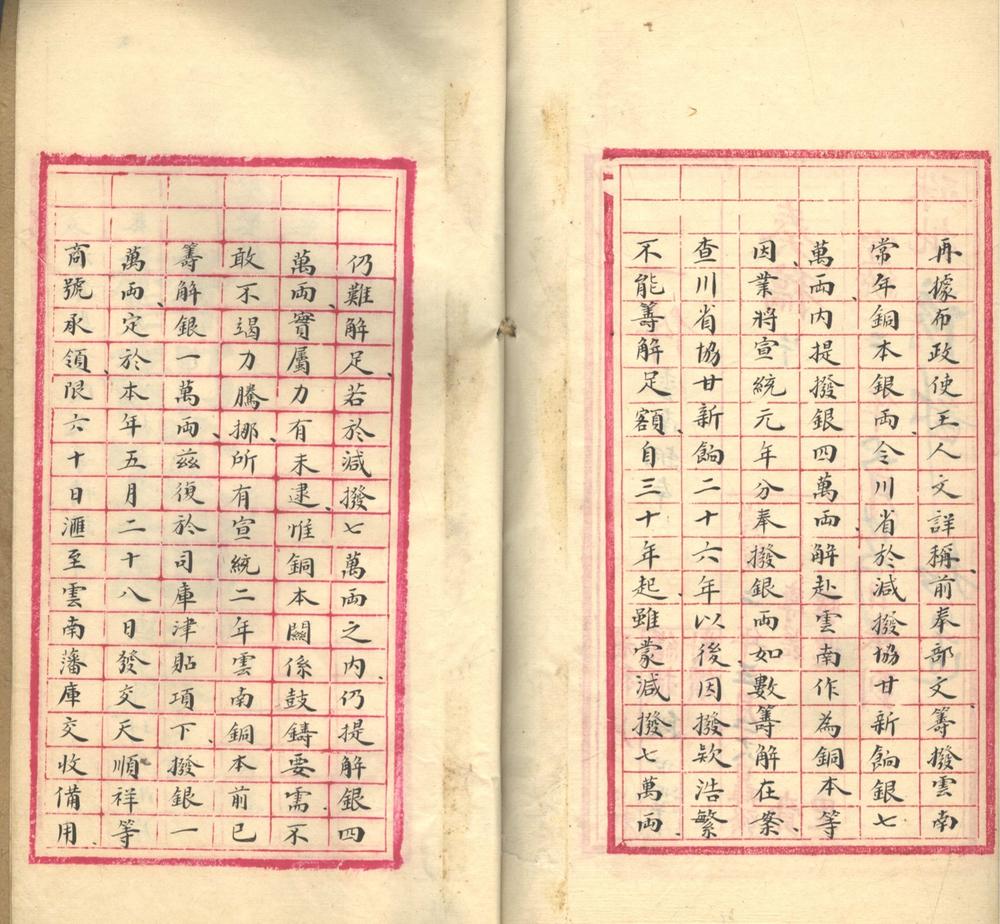 再據布政使王人文詳稱、前奉部文、籌撥雲南
常年銅本銀兩、令川省於減撥協甘新餉銀七
萬兩、內提撥銀四萬兩、解赴雲南作為銅本等
因業將宣統元年分奉撥銀兩、如數籌解在案、
查川省協甘新餉二十六年以後、因撥欵浩繁、
不能籌解足額、自三十年起、雖蒙減撥七萬兩、
仍難解足、若於減撥七萬兩之內、仍提解銀四
萬兩、實屬力有未逮、惟銅本關係鼓鑄要需、不
敢不竭力騰挪、所有宣統二年雲南銅本前已
籌解銀一萬兩、茲復於司庫津貼項下、撥銀一
萬兩、定於本年五月二十八日發交天順祥等
商號承領、限六十日滙至雲南藩庫交收備用、